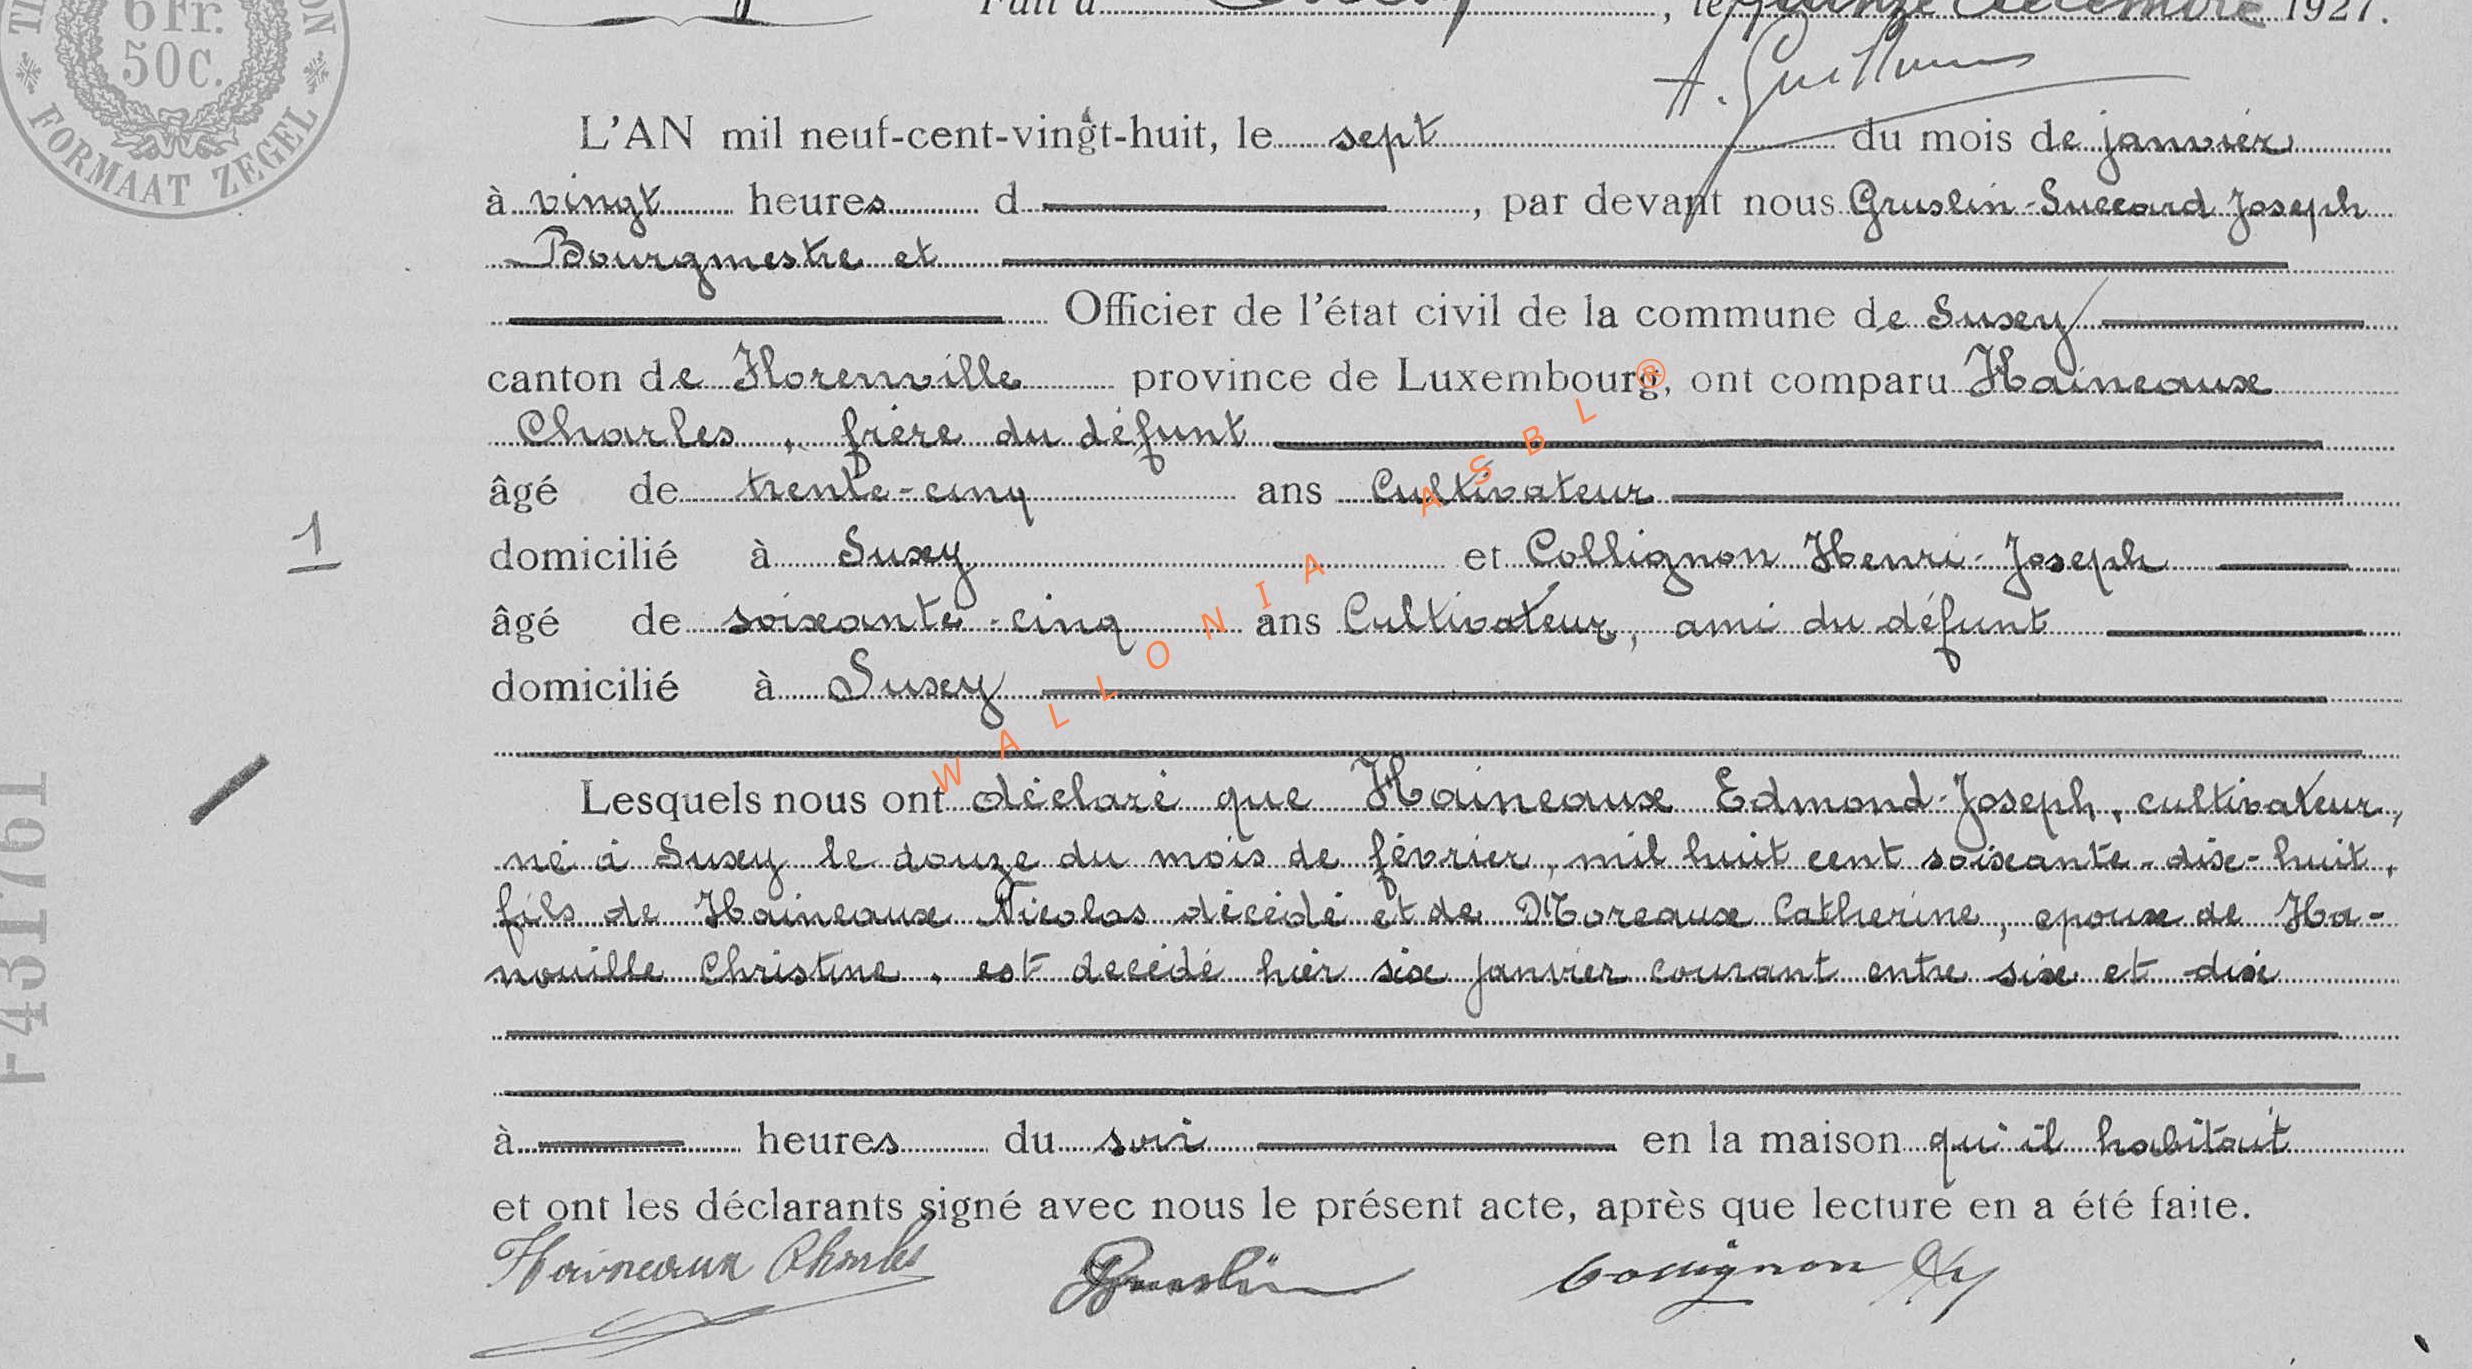 6 Fr.
50C.
FORMAAT ZEGEL
Fait à, le quinze décembre 1927.
A. Guillaume
L'AN mil neuf-cent-vingt-huit, le sept du mois de janvier
à vingt heures d, par devant nous Gruslin-Succard Joseph
Bourgmestre et
Officier de l'état civil de la commune de Suxey
canton de Florenville province de Luxembourg, ont comparu Haineaux
Charles, frère du défunt
âgé de trente-cinq ans Cultivateur
1
domicilié à Suxy et Collignon Henri-Joseph
âgé de soixante-cinq ans Cultivateur, ami du défunt
domicilié à Suxey
WALLONIA ASBL®
F431761
Lesquels nous ont déclaré que Haineaux Edmond-Joseph, cultivateur,
né à Suxey le douze du mois de février, mil huit cent soixante-dix-huit,
fils de Haineaux Nicolas décédé et de Moreaux Catherine, epoux de Ha-
nouille Christine, est decédé hier six janvier courant entre six et dix
à heures du soir en la maison qu'il habitait
et ont les déclarants signé avec nous le présent acte, après que lecture en a été faite.
Haineaux Charles Gruslin Collignon Hy